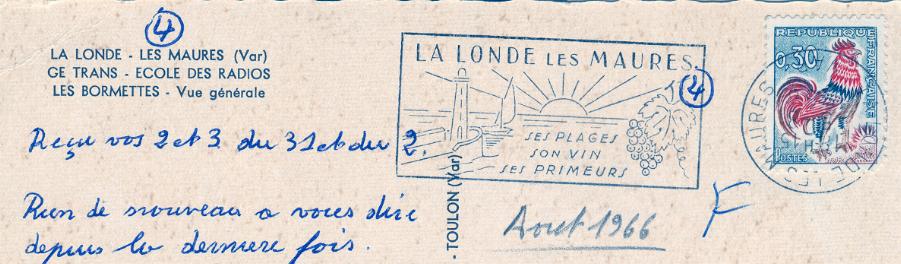 4
LA LONDE - LES MAURES (Var)
GE TRANS - ECOLE DES RADIOS
LES BORMETTES - Vue générale
Reçu vos 2 et 3 du 31 et du 2.
Rien de nouveau a vous dire
depuis la derniere fois.
TOULON (Var)
LA LONDE LES MAURES
4
SES PLAGES
SON VIN
SES PRIMEURS
Aout 1966
F
REPUBLIQUE
FRANÇAISE
0,30
POSTES